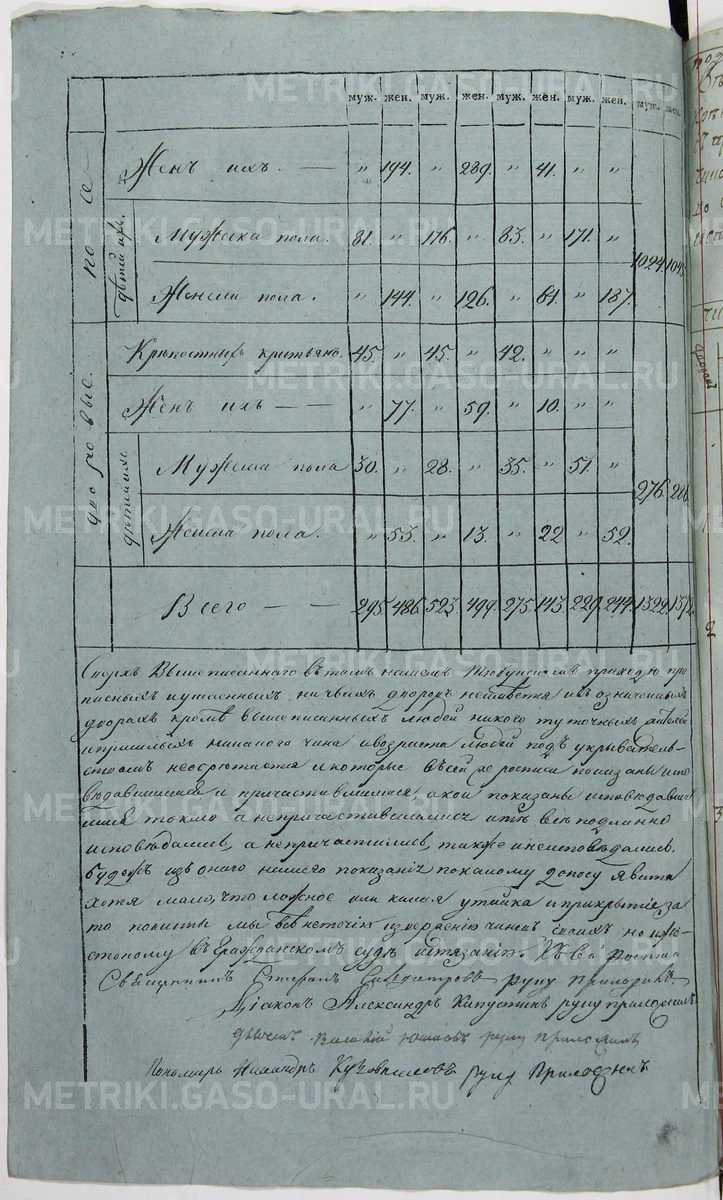 муж. жен. муж. жен. муж. жен. муж. жен. муж. жен.
по се-
Женъ ихъ. — " 194. " 239. " 41. " "
дѣтей ихъ.
Мужеска пола. 81. " 176. " 83. " 171. " 1024.
Женска пола. " 144. " 126. " 61. " 187.
дворовые.
Крѣпостныхъ крестьянъ. 45. " 45. " 42. " " "
Женъ ихъ — — " 77. " 59. " 10. " "
дѣтей ихъ
Мужеска пола 30. " 28. " 35. " 51. " 276.
Женска пола. " 53. " 13. " 22 " 52.
Всего — — 295. 486. 523. 499. 275. 143. 229. 244. 1322. 1372.
Сверхъ вышеписаннаго въ томъ нашемъ приходѣ про-
писныхъ и утаенныхъ ни чьихъ дворовъ неимѣется и въ означенныхъ
дворахъ кромѣ вышеписанныхъ людей никого тутошныхъ жителей
и пришлыхъ никакого чина и возраста людей подъ укрыватель-
ствомъ необрѣтается и которые въ сей росписи показаны испо-
вѣдавшимися и причастившимися, а кои показаны исповѣдавши-
мися токмо а непричастившимися и тѣ всѣ подлинно
исповѣдались, а непричастились, также и неисповѣдались.
Будежъ изъ онаго нашего показанія по какому доносу явится
хотя мало, что ложное или какая утайка и прикрытие за
то повинны мы всѣ неточію изверженію чиновъ своихъ но и же-
стокому въ Гражданскомъ судѣ истязанію. Къ сей росписи
Священникъ Стефанъ руку приложилъ
Діаконъ Александръ Капустинъ руку приложилъ
дьячекъ Василій руку приложилъ
Пономарь руку Приложилъ
METRIKI.GASO-URAL.RU